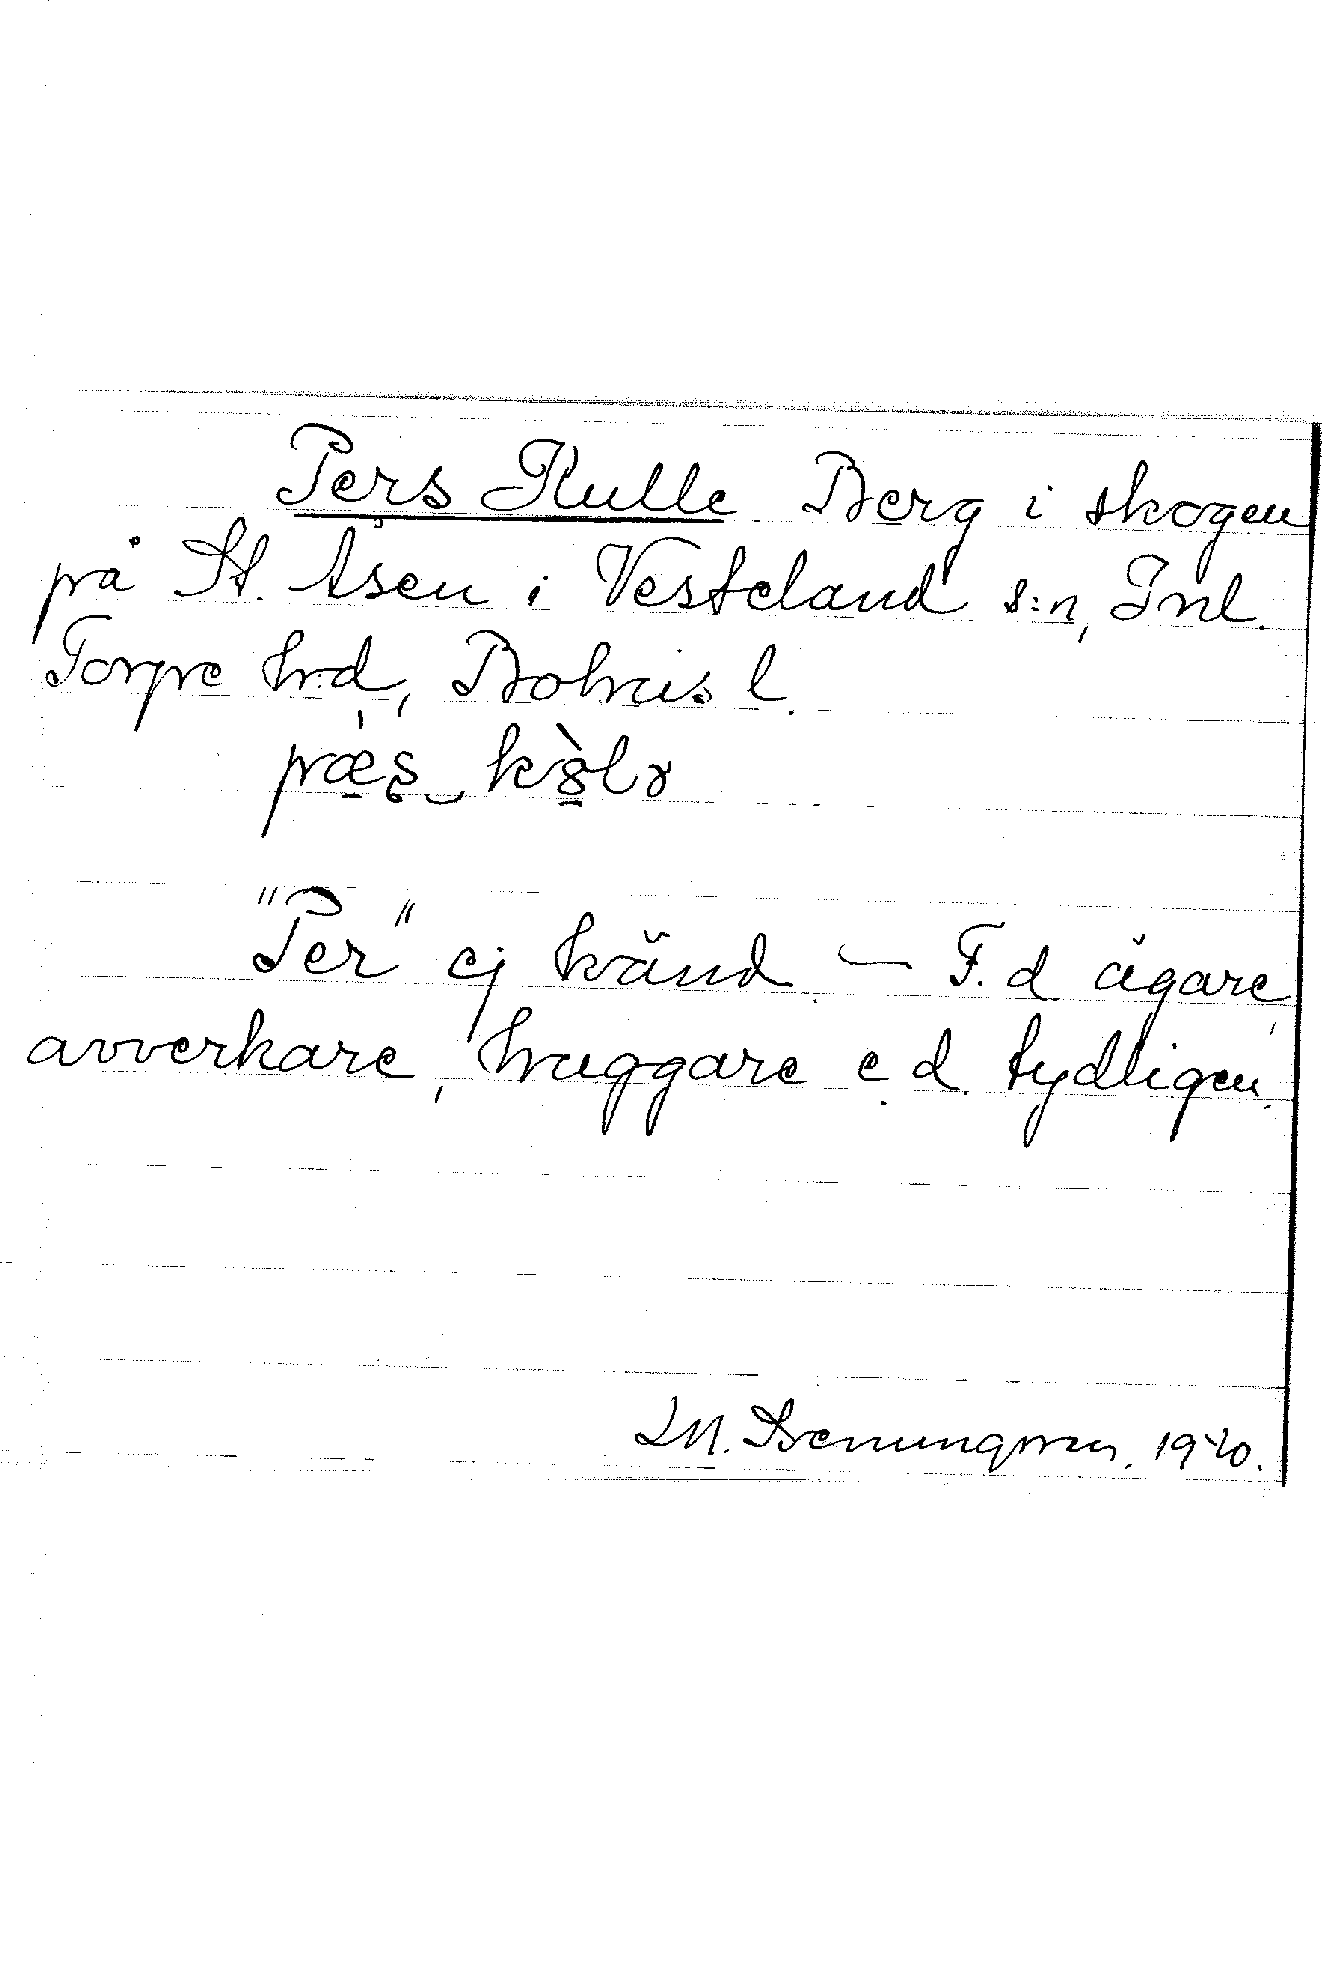 Pers Kulle Berg i skogen
på St. Åsen i Vesteland s:n, Inl.
Torpe hd, Bohus l.
"Per" ej känd. — F.d ägare,
avverkare, huggare e.d. tydligen.